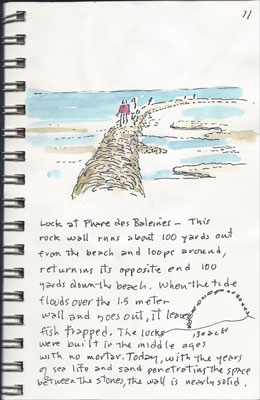 71
Lock at Phare des Baleines – This
rock wall runs about 100 yards out
from the beach and loops around,
returning its opposite end 100
yards down the beach. When the tide
floods over the 1.5 meter
wall and goes out, it leaves
fish trapped. The locks
beach
were built in the middle ages
with no mortar. Today, with the years
of sea life and sand penetrating the space
between the stones, the wall is nearly solid.